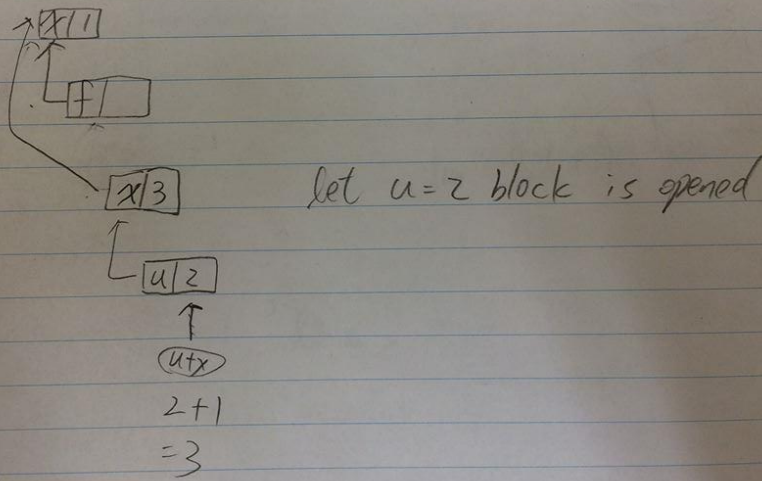 x 1
f
x 3 let u = 2 block is opened
u 2
u+x
2+1
=3